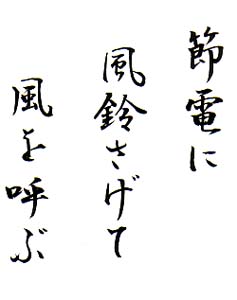 節電に
風鈴さげて
風を呼ぶ